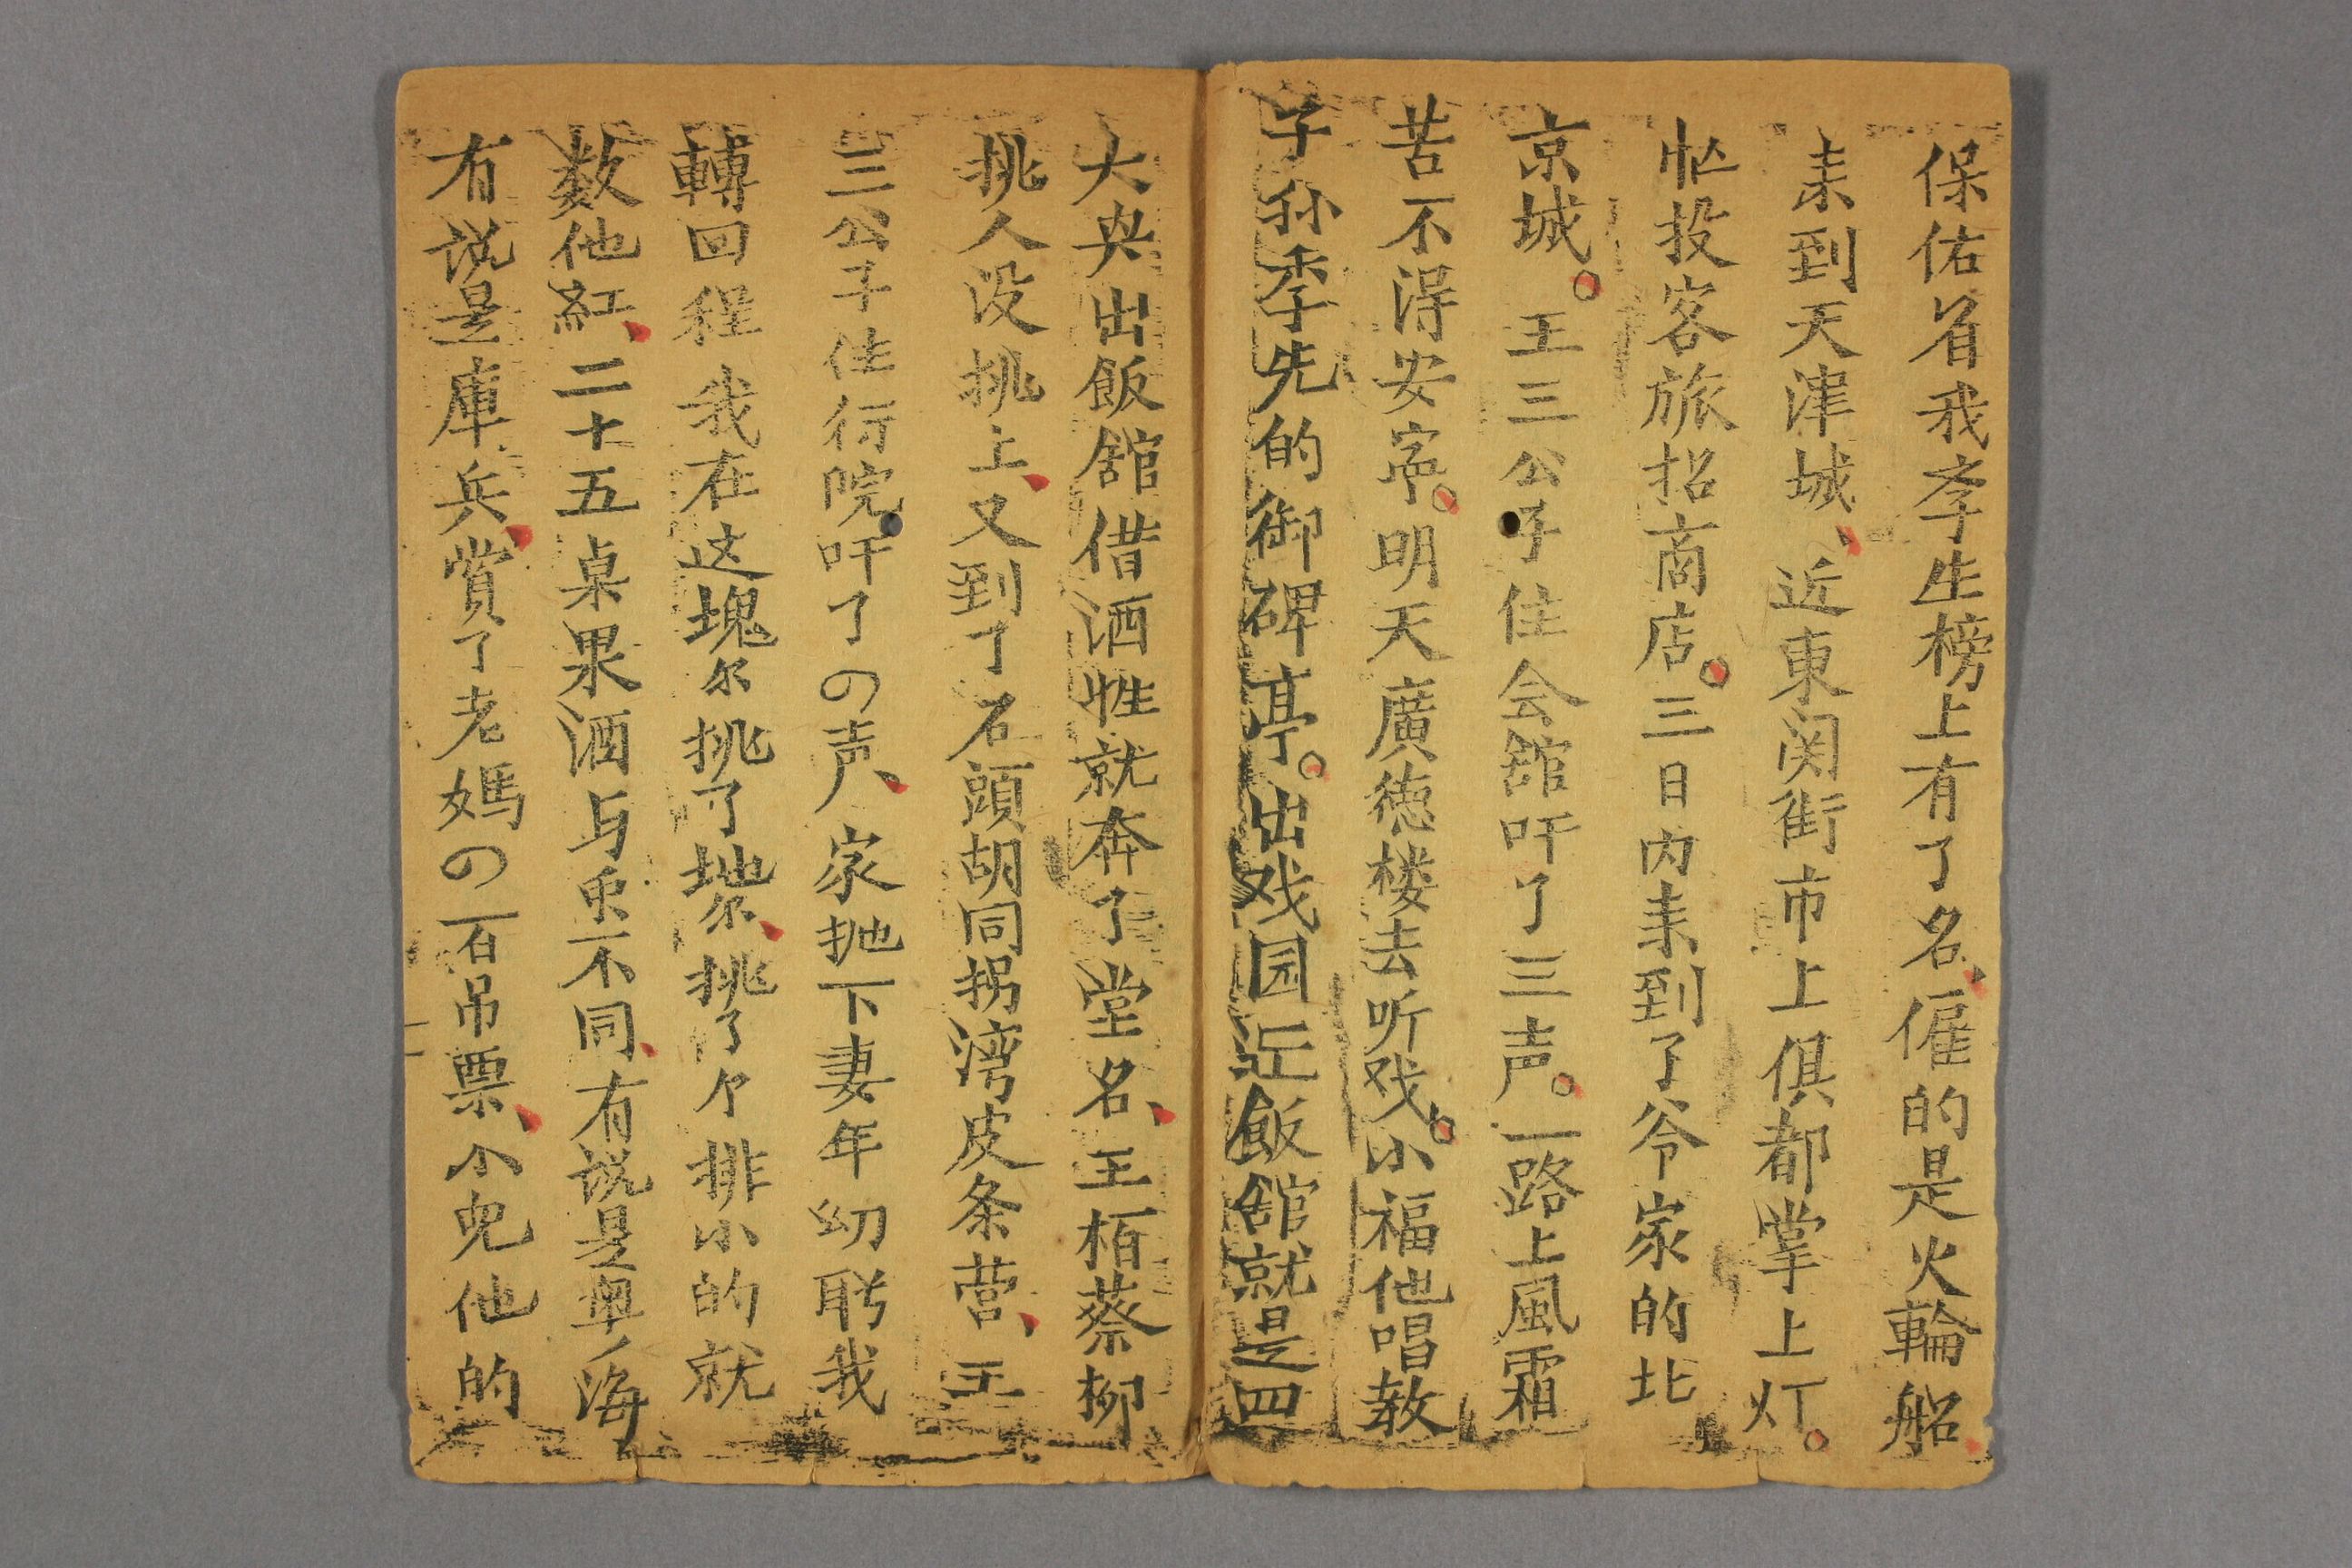 保佑着我李生榜上有了名、僱的是火輪船、
来到天津城、近東関街市上俱都掌上灯。
忙投客旅招商店。三日内来到了爷家的北
京城。王三公子住会舘吁了三声。一路上風霜
苦不得安寧。明天廣德楼去听戏。小福他唱教
子孙季先的御碑亭。出戏园近飯舘就是四
大央出飯舘借酒性就奔了堂名、王栢蔡柳
挑人没挑上、又到了石頭胡同拐湾皮条营、王
三公子住衍院吁了の声、家抛下妻年幼聘我
轉回程我在这塊尔挑了塊尔、挑了个排小的就
数他紅、二十五桌果酒与重不同、有说是粤海
有说是庫兵、賞了老媽の一百吊票、小兒他的